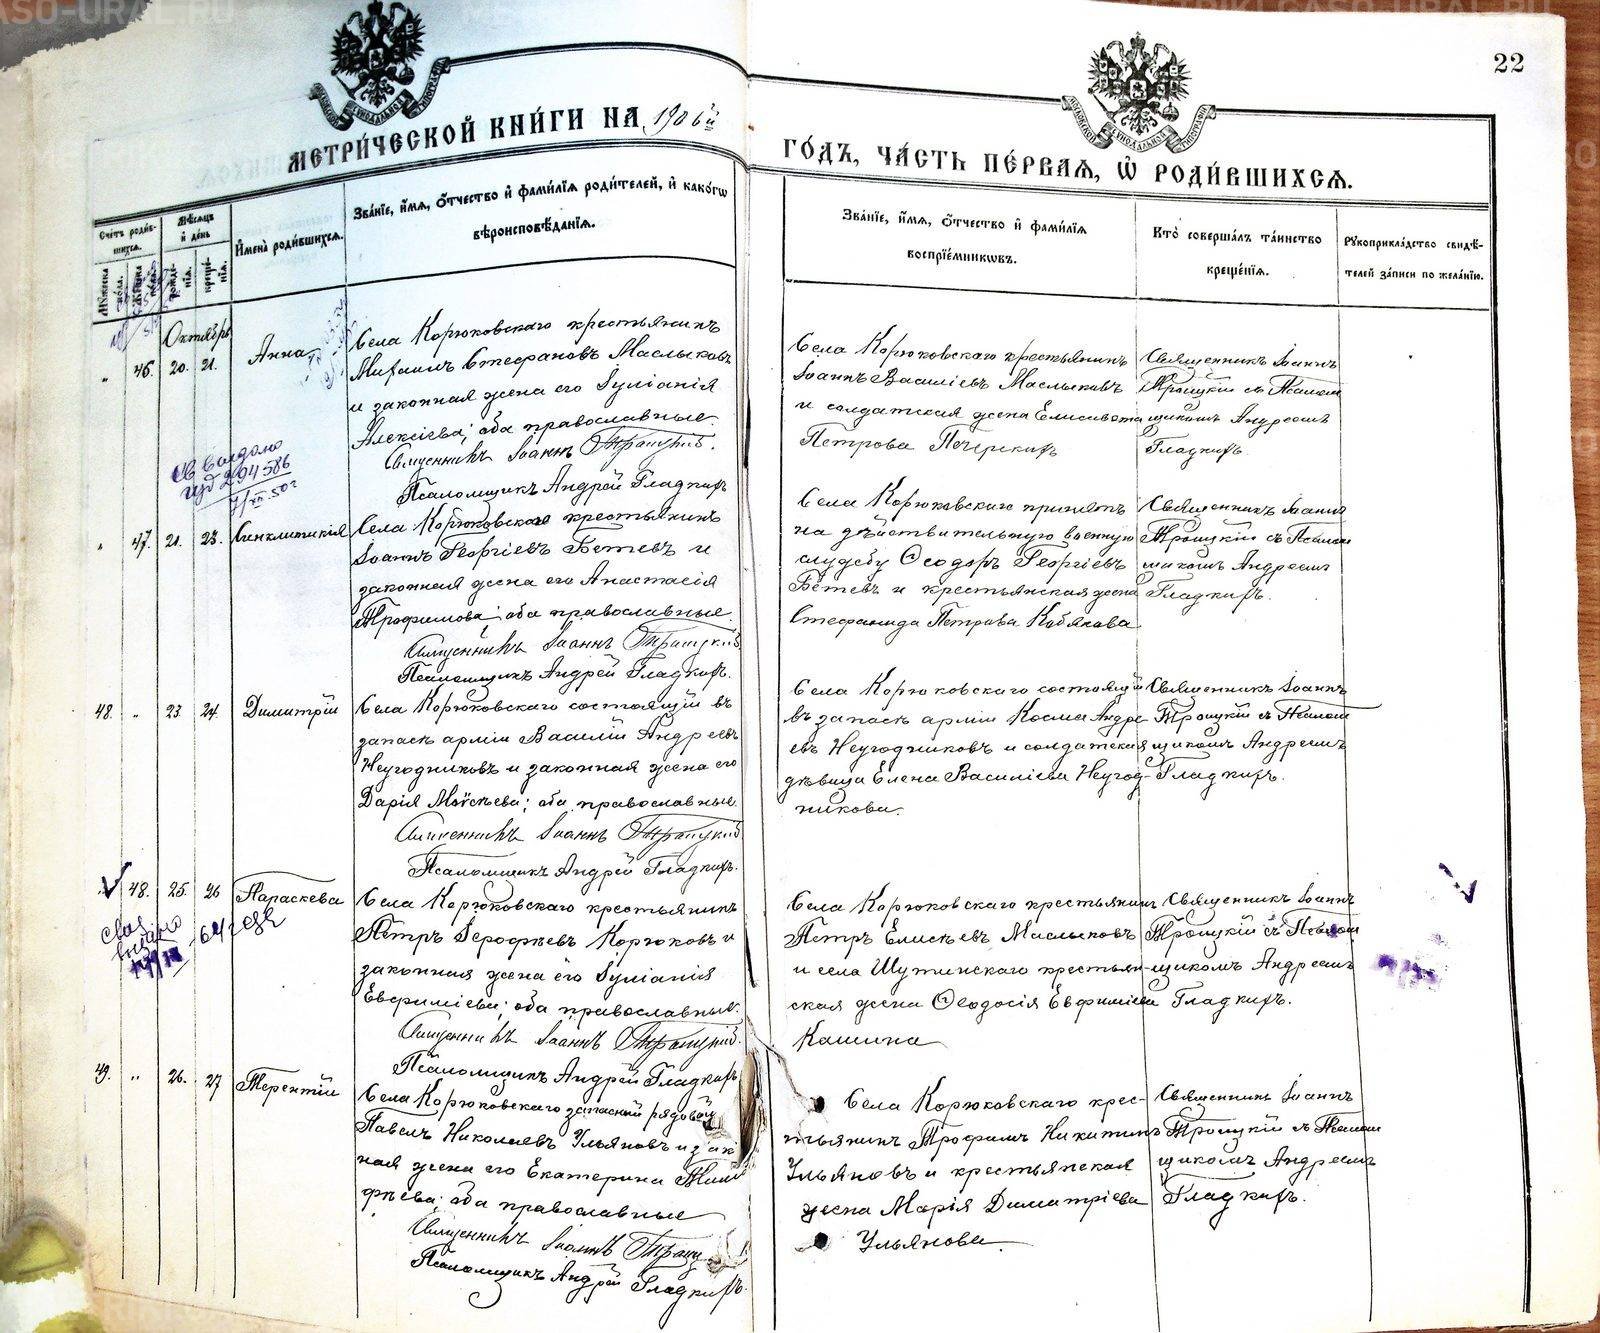 22
МЕТРИ́ЧЕСКОЙ КНИ́ГИ НА 1906й
ГО́ДЪ, ЧА́СТЬ ПЕ́РВАЯ, Ѡ РОДИ́ВШИХСЯ.
Счетъ родив-
шихся.
Мѣсяцъ
и день
Имена родившихся.
Званіе, имя, отчество и фамилія родителей, и какогѡ
вѣроисповѣданія.
Мужеска пола.
Женска пола.
рожде-
нія.
креще-
нія.
Званіе, имя, отчество и фамилія
воспріемникѡвъ.
Кто совершалъ таинство
крещенія.
Рукоприкладство свидѣ-
телей записи по желанію.
Октябрь
" 46. 20. 21. Анна
Села Корюковскаго крестьянинъ
Михаилъ Стефановъ Маслыковъ
и законная жена его Іуліанія
Алексіева; оба православные.
Священникъ Іоаннъ Троицкій.
Псаломщикъ Андрей Гладкихъ
Села Корюковскаго крестьянинъ
Іоаннъ Василіевъ Маслыковъ
и солдатская жена Елисавета
Петрова Печеркихъ
Священникъ Іоаннъ
Троицкій съ Псалом
щикомъ Андреемъ
Гладкихъ.
294586
" 47. 21. 23. Синклитикія
Села Корюковскаго крестьянинъ
Іоаннъ Георгіевъ Бетевъ и
законная жена его Анастасія
Трофимова; оба православные.
Священникъ Іоаннъ Троицкій
Псаломщикъ Андрей Гладкихъ.
Села Корюковскаго принятъ
на дѣйствительную военную
службу Ѳеодоръ Георгіевъ
Бетевъ и крестьянская жена
Стефанида Петрова Кобякова
Священникъ Іоаннъ
Троицкій съ Псалом
щикомъ Андреемъ
Гладкихъ.
48. " 23. 24. Димитрій
Села Корюковскаго состоящій въ
запасѣ арміи Василій Андреевъ
Неугодниковъ и законная жена его
Дарія Моѵсѣева; оба православные.
Священникъ Іоаннъ Троицкій
Псаломщикъ Андрей Гладкихъ.
Села Корюковскаго состоящій
въ запасѣ арміи Косма Андре-
евъ Неугодниковъ и солдатская
дѣвица Елена Василіева Неугод-
никова.
Священникъ Іоаннъ
Троицкій съ Псалом
щикомъ Андреемъ
Гладкихъ.
48. 25. 26 Параскева
Села Корюковскаго крестьянинъ
Петръ Іерофѣевъ Корюковъ и
законная жена его Іуліанія
Евфиміева; оба православные.
Священникъ Іоаннъ Троицкій.
Псаломщикъ Андрей Гладкихъ
Села Корюковскаго крестьянинъ
Петръ Елисѣевъ Маслыковъ
и села Шутинскаго крестьян-
ская жена Ѳеодосія Евфиміева
Кашина
Священникъ Іоаннъ
Троицкій съ Псалом
щикомъ Андреемъ
Гладкихъ.
49. " 26. 27 Терентій
Села Корюковскаго запасный рядовой
Павелъ Николаевъ Ульяновъ и зак
ная жена его Екатерина Тимо
фѣева; оба православные
Священникъ Іоаннъ Троиц
Псаломщикъ Андрей Гладкихъ.
Села Корюковскаго крес-
тьянинъ Трофимъ Никитинъ
Ульяновъ и крестьянская
жена Марія Димитріева
Ульянова.
Священникъ Іоаннъ
Троицкій съ Псалом
щикомъ Андреемъ
Гладкихъ.